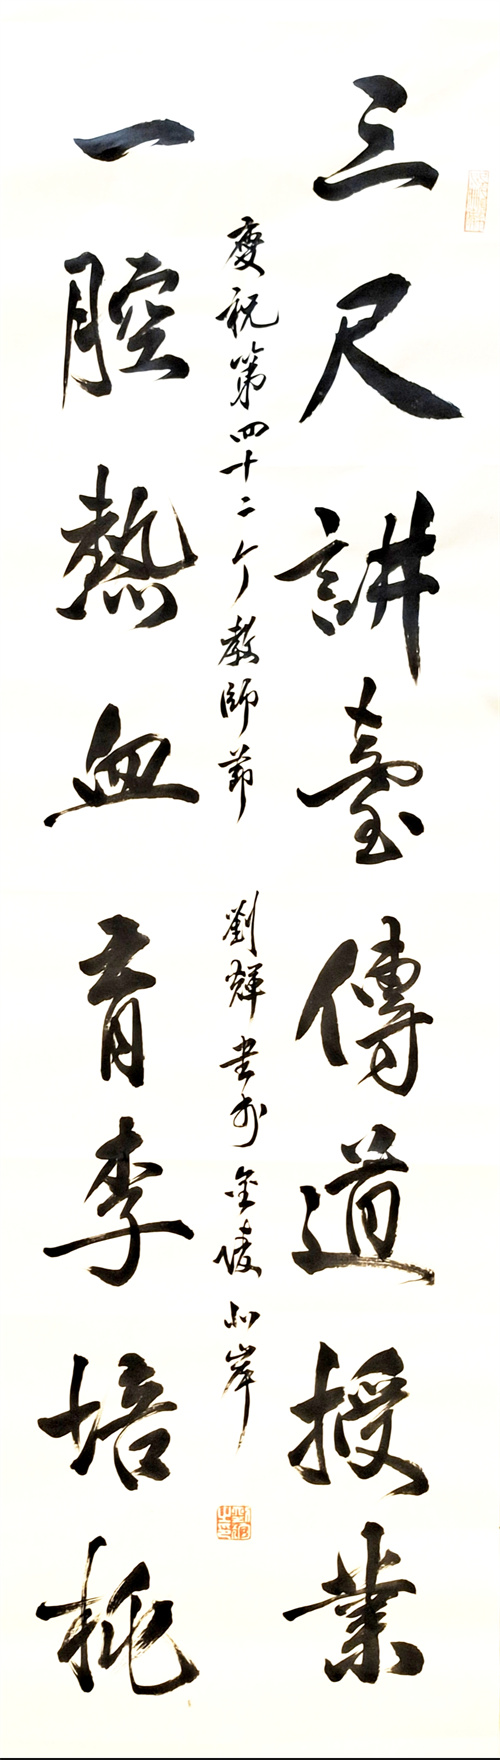 三尺講臺傳道授業
慶祝第四十二个教師節 劉輝書於金陵北岸
一腔熱血育李培桃